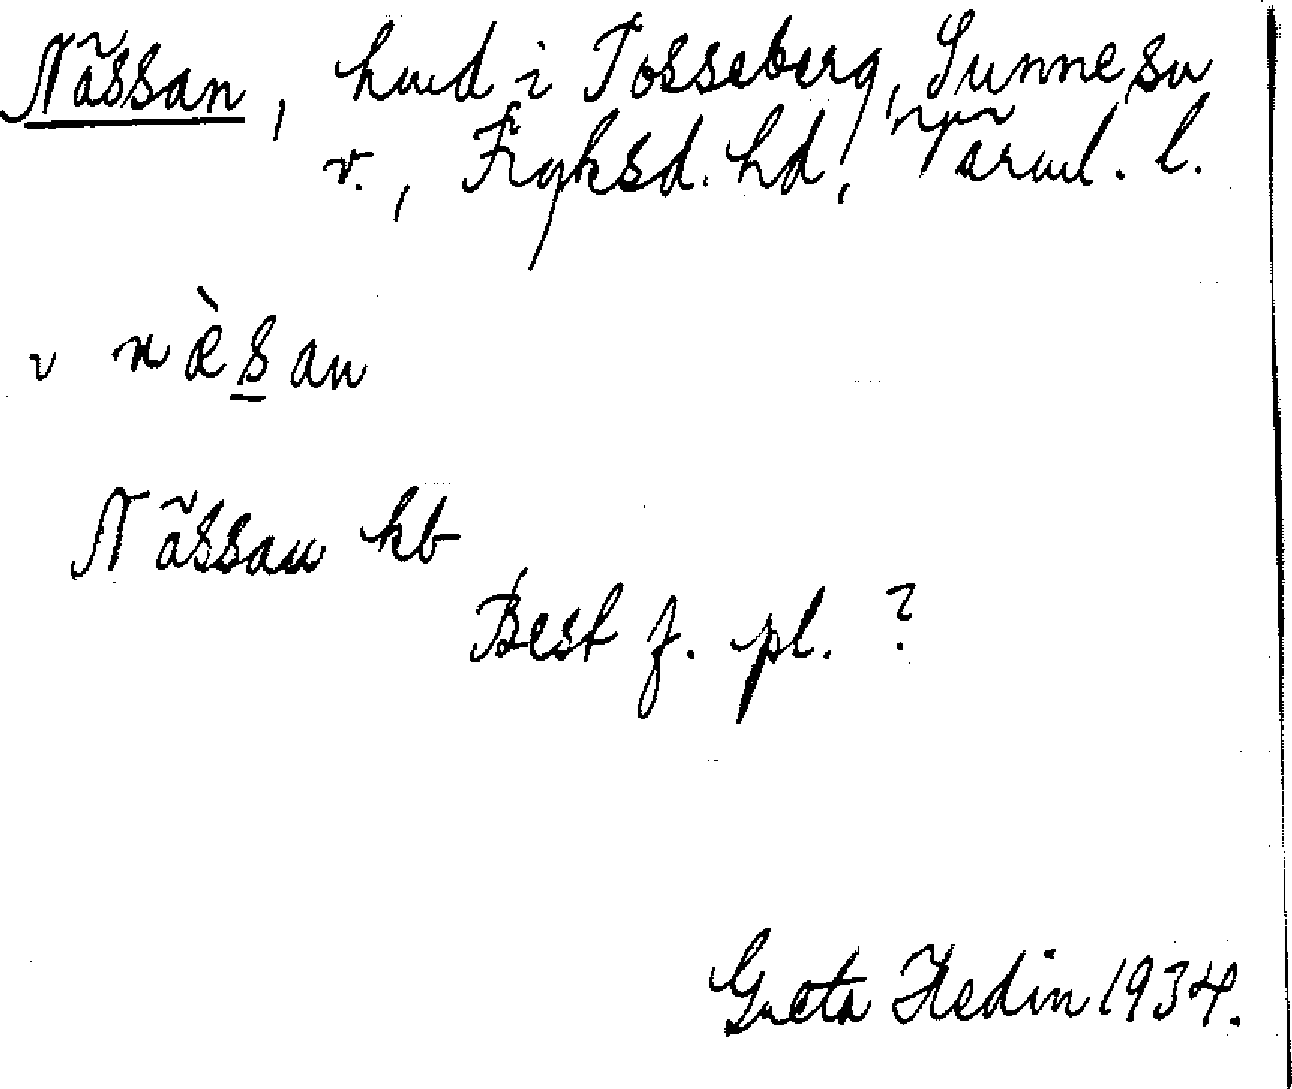 Nässan, hmd i Tosseberg, Sunne sn
v., Fryksd. hd, Värml. l.
v næ̀s̲an
Nässan kb
Best f. pl. ?
Greta Hedin 1934.